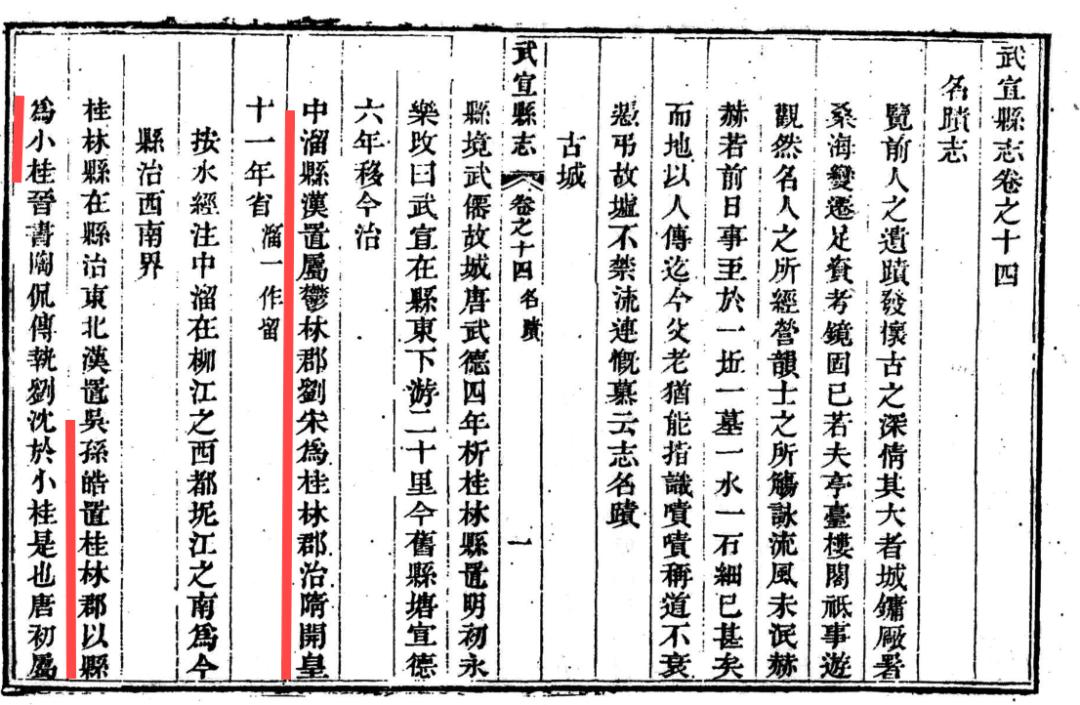 武宣縣志卷之十四
名蹟志
覽前人之遺蹟發懷古之深情其大者城鏞廠署
桑海變遷足資考鏡固已若夫亭臺樓閣祗事遊
觀然名人之所經營韻士之所觴詠流風未泯赫
赫若前日事至於一坵一墓一水一石細已甚矣
而地以人傳迄今父老猶能指識嘖嘖稱道不衰
憑弔故墟不禁流連慨慕云志名蹟
古城
武宣縣志
卷之十四 名蹟
一
縣境武僊故城唐武德四年析桂林縣置明初永
樂改曰武宣在縣東下游二十里今舊縣塘宣德
六年移今治
中溜縣漢置屬鬱林郡劉宋爲桂林郡治隋開皇
十一年省 溜一作留
按水經注中溜在柳江之西都坭江之南爲今
縣治西南界
桂林縣在縣治東北漢置吳孫皓置桂林郡以縣
爲小桂晉書陶侃傳執劉沈於小桂是也唐初屬